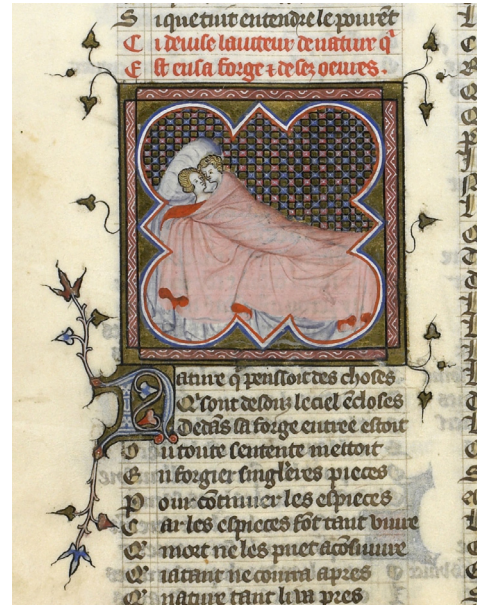 S i que tuit entendre le pouret
C i deuise lauteur de nature q̄
E st en sa forge ⁊ de sez oeures .
N ature q̄ pensoit des choses
Q̄ sont desouz le ciel ēcloses
D edās sa forge entree estoit
O u toute sentente mettoit
E n forgier singl'eres pieces
P our cōtinuer les espieces
C ar les espieces fōt tant viure
Q̄ mort ne les puet acōsiuure
Q̄ ia tant ne courra apres
Q̄ nature tant li va pres